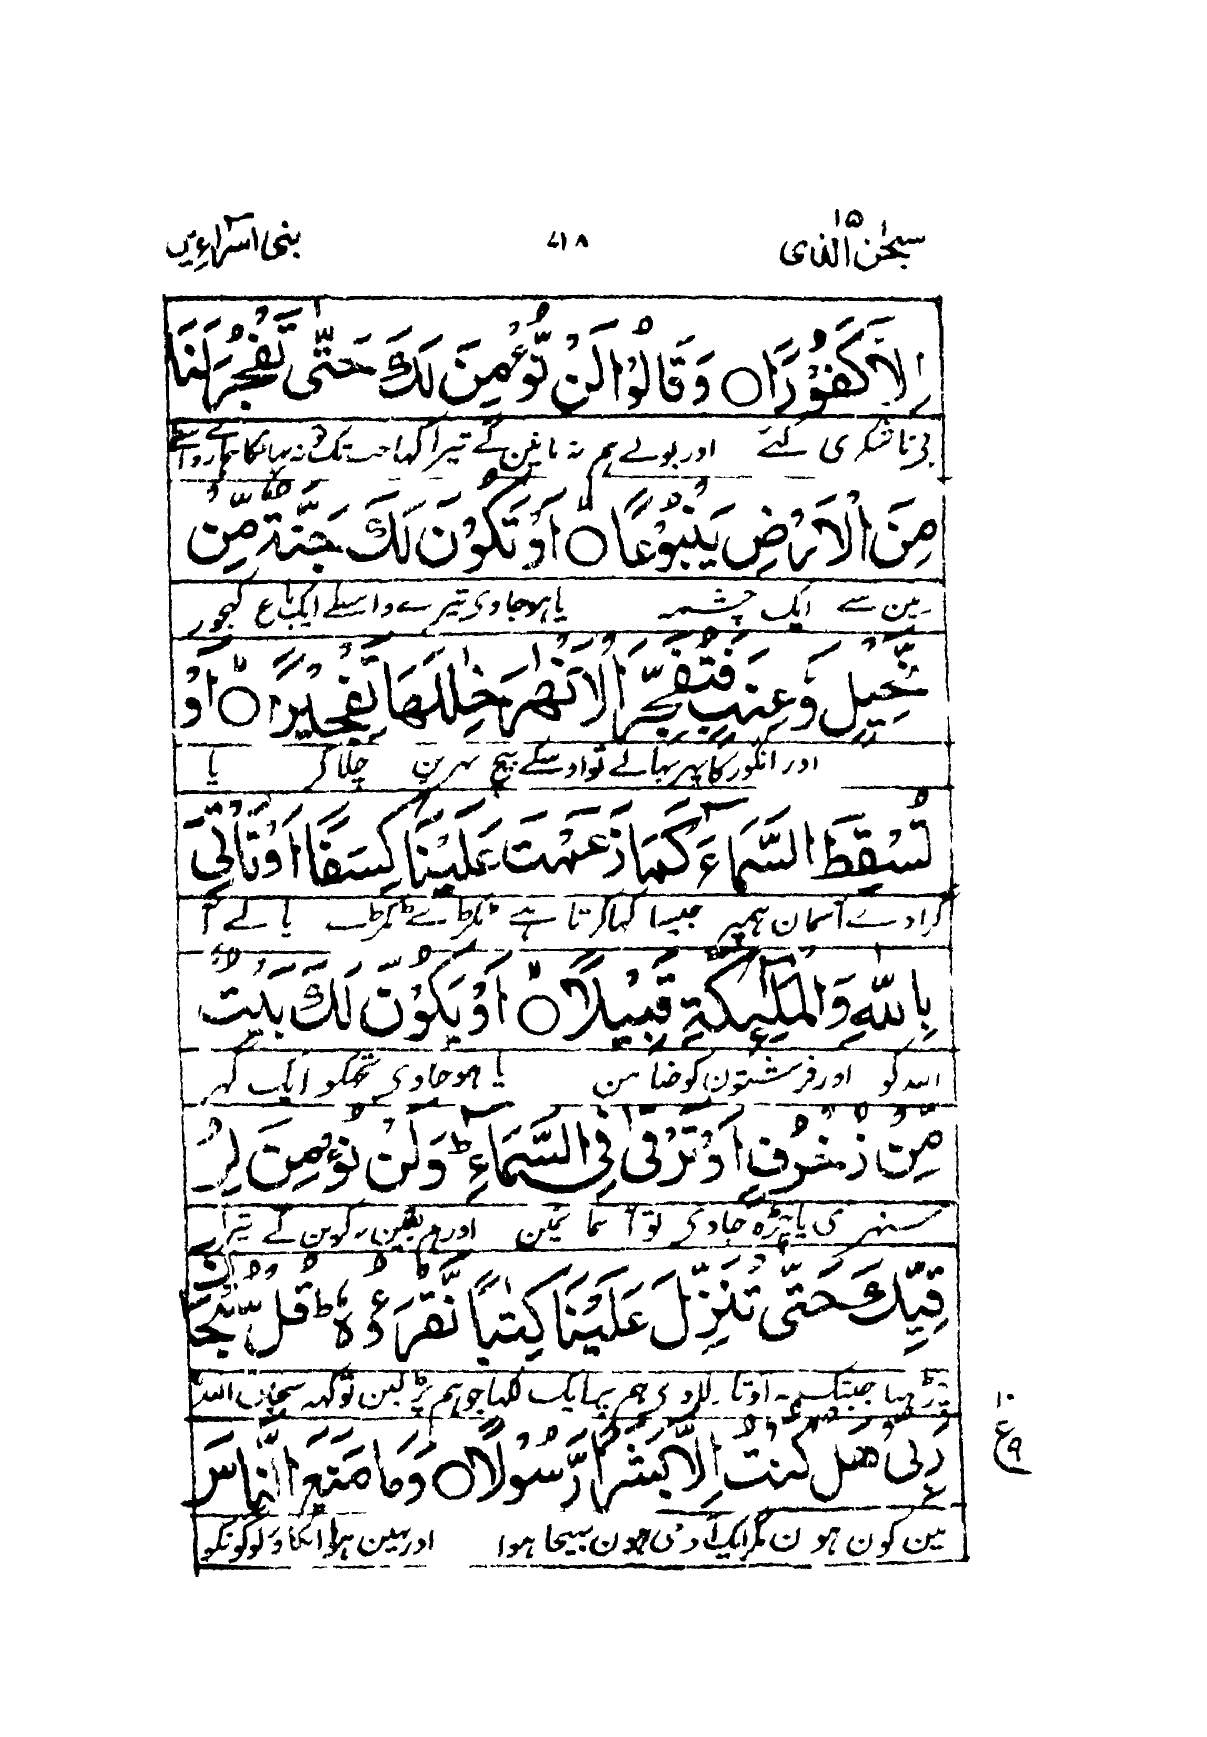 سبحٰن الذی ۱۵ ۴۱۸ بنی اسرآءیل
اِلَّا كَفُوْرًا ۝ وَ قَالُوْا لَنْ نُّؤْمِنَ لَكَ حَتّٰى تَفْجُرَ لَنَا
بن ناشکری کئے اور بولے ہم نہ مانین گے تیرا کہا جب تک تو نہ بہا نکالے ہمارے واسطے
مِنَ الْاَرْضِ يَنْۢبُوْعًا ۝ اَوْ تَكُوْنَ لَكَ جَنَّةٌ مِّنْ
زمین سے ایک چشمہ یا ہو جاوی تیرے واسطے ایک باغ کھجور
نَّخِيْلٍ وَّ عِنَبٍ فَتُفَجِّرَ الْاَنْهٰرَ خِلٰلَهَا تَفْجِيْرًا ۝ اَوْ
اور انگور کا پھر بہالے تو اوسکے بیچ نہرین چلا کر یا
تُسْقِطَ السَّمَآءَ كَمَا زَعَمْتَ عَلَيْنَا كِسَفًا اَوْ تَاْتِیَ
گرا دے آسمان ہمپر جیسا کہا کرتا ہے ٹکڑے ٹکڑے یا لے آ
بِاللّٰهِ وَ الْمَلٰٓئِكَةِ قَبِيْلًا ۝ اَوْ يَكُوْنَ لَكَ بَيْتٌ
اللہ کو اور فرشتون کو ضامن یا ہو جاوی تجھکو ایک گھر
مِّنْ زُخْرُفٍ اَوْ تَرْقٰى فِی السَّمَآءِ ؕ وَ لَنْ نُّؤْمِنَ لِرُ
سنہری یا چڑہ جاوی تو آسمانمین اور ہم یقین نہ کرین گے تیرا
قِيِّكَ حَتّٰى تُنَزِّلَ عَلَيْنَا كِتٰبًا نَّقْرَؤُهٗ ؕ قُلْ سُبْحَانَ
چڑہنا جبتک نہ اوتار لاوی ہم پر ایک لکھا جو ہم پڑہ لین تو کہہ سبحان اللہ
رَبِّیْ هَلْ كُنْتُ اِلَّا بَشَرًا رَّسُوْلًا ۝ وَ مَا مَنَعَ النَّاسَ
مین کون ہون مگر ایک آدمی ہون بھیجا ہوا اور نہین ہوا اٹکاو لوگونکو
۱۰
ع
۹